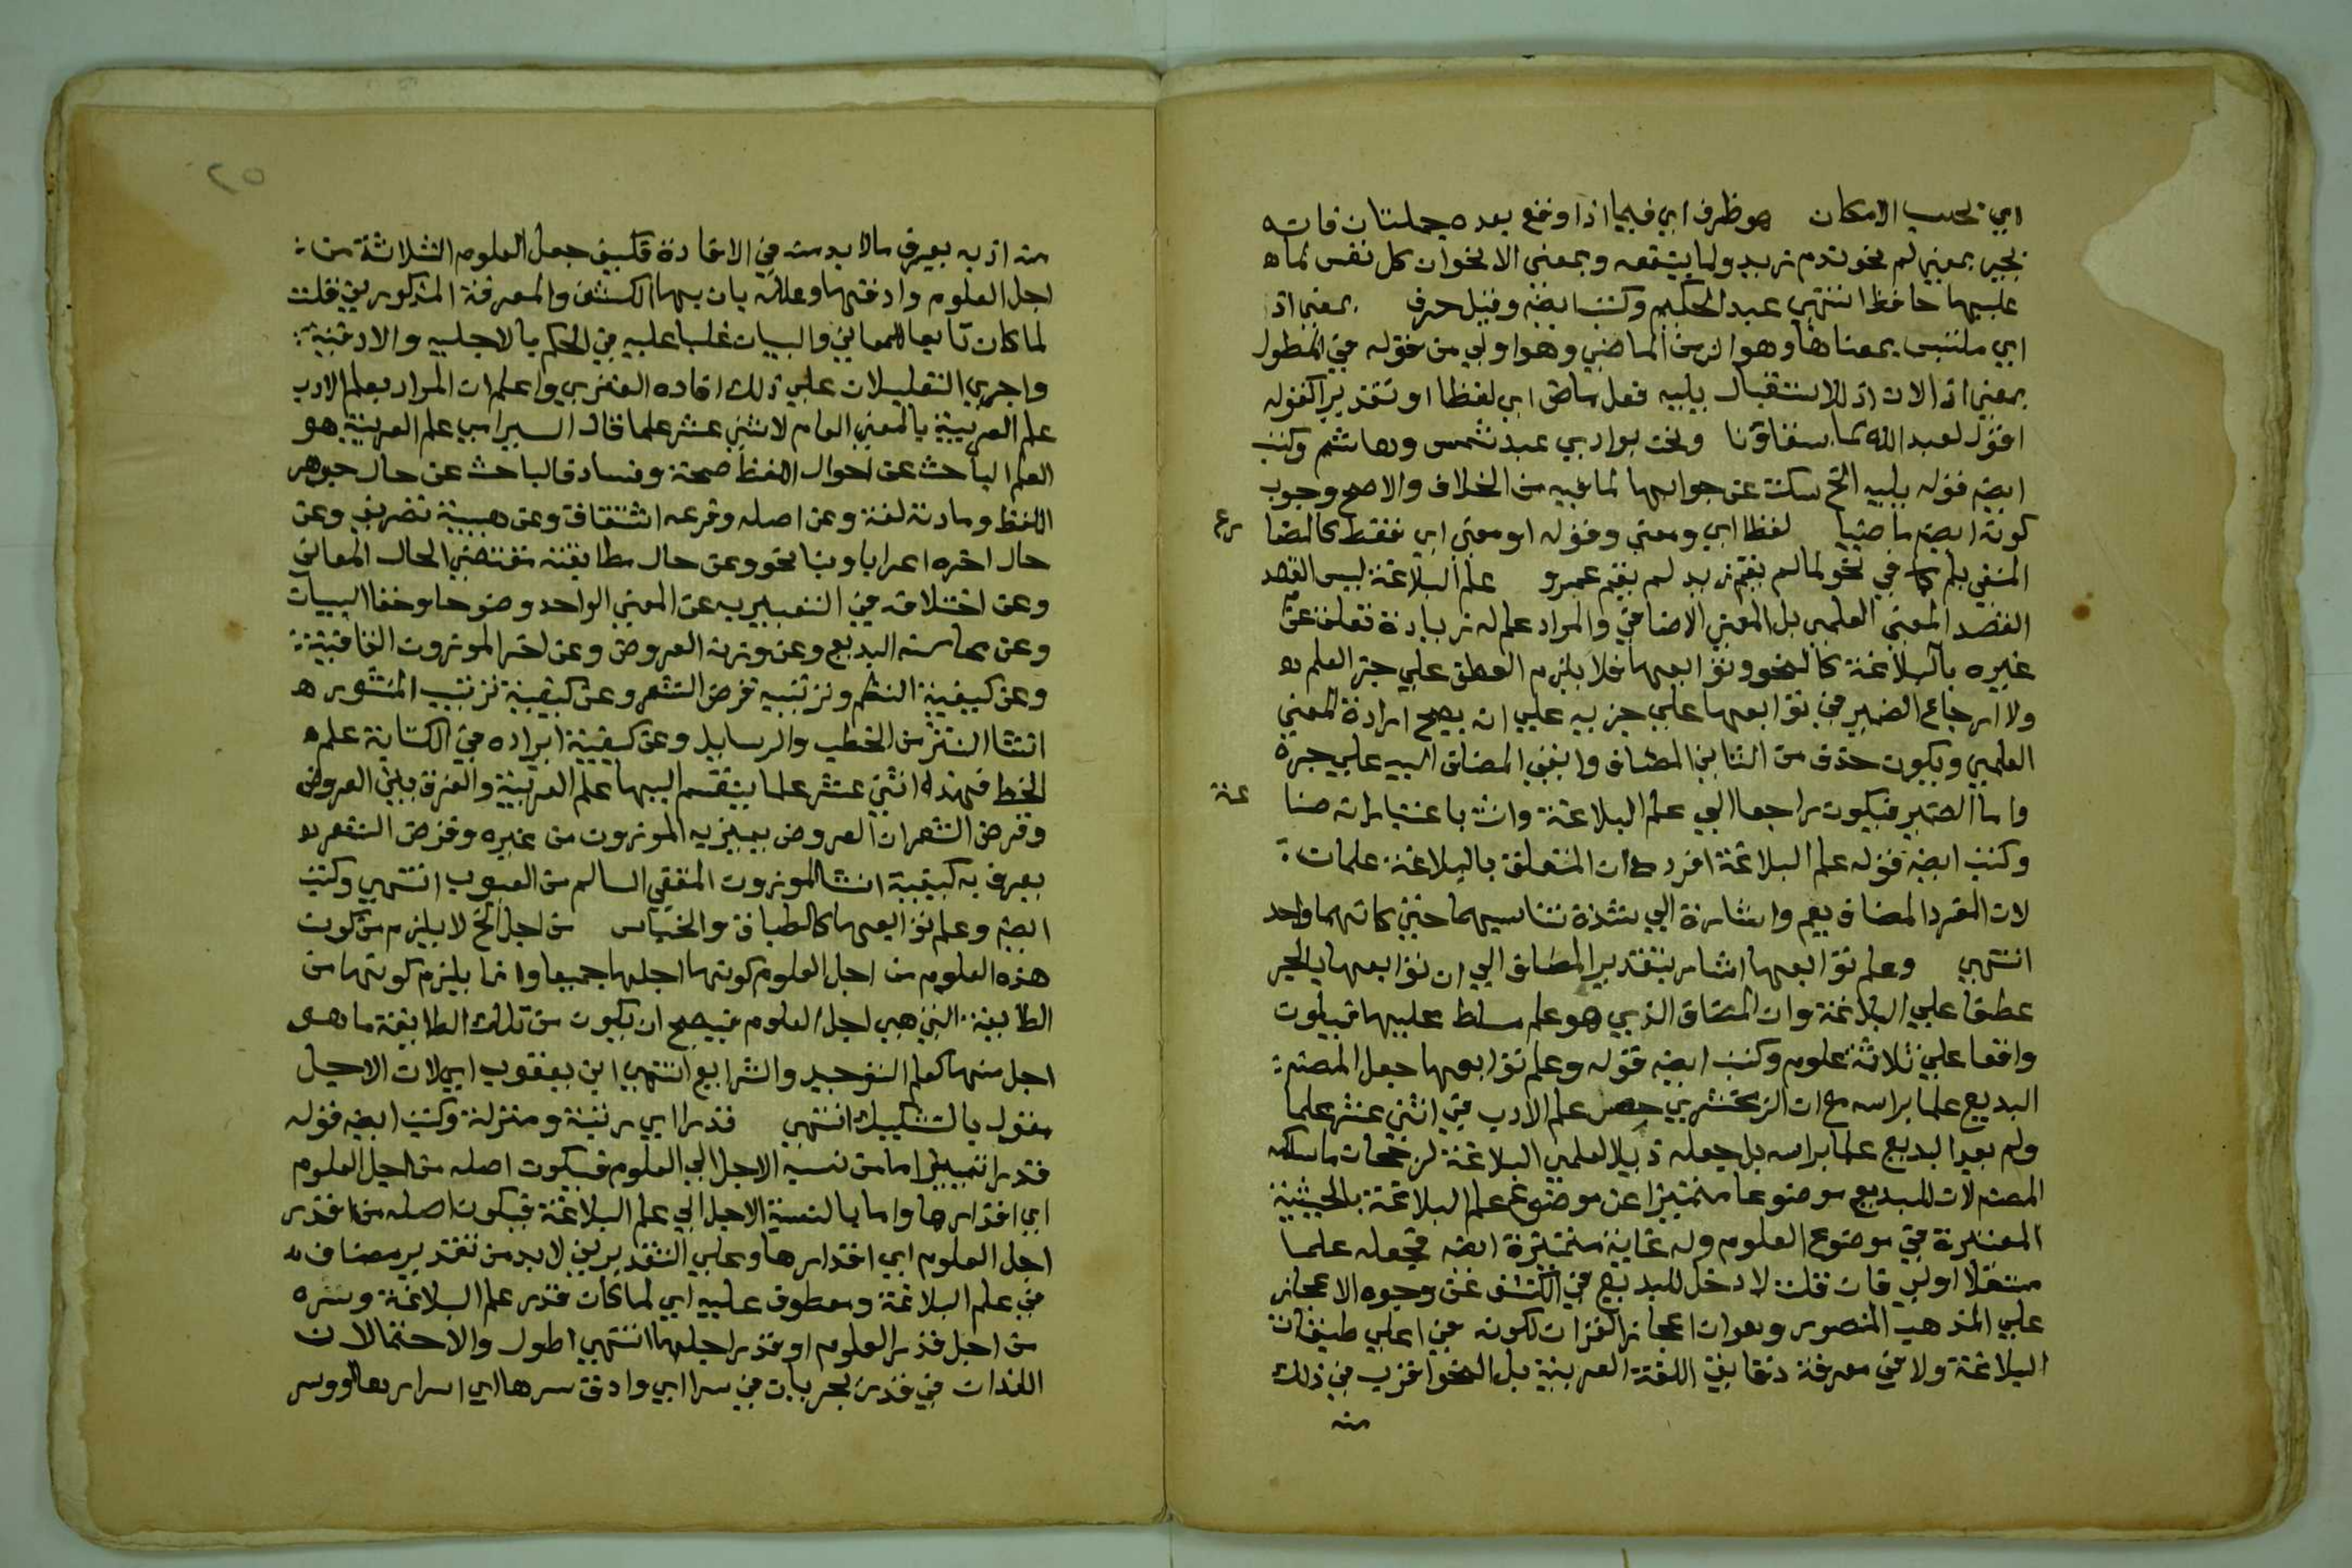 اي بحسب الامكان هو ظرف اي فيما اذا وقع بعده جملتان فانه
يجي بمعني لم نحو ندم زيد ولما ينفعه وبمعني الا نحو ان كل نفس لما ه
عليها حافظ انتهي عبد الحكيم وكتب ايضه وقيل حرف بمعني اذ
اي ملتبس بمعناها وهو الزمن الماضي وهو اولي من قوله في المطول
بمعني اذا لان اذا للاستقبال يليه فعل ماض اي لفظا او تقديرا كقوله
اقول لعبد الله لما سقاؤنا ونحن بوادي عبد شمس وهاشم وكتب
ايضه قوله يليه الخ سكت عن جوابها لما فيه من الخلاف والاصح وجوب
كونه ايضه ماضيا لفظا اي ومعني وقوله او معني اي فقط كالمضا رع
المنفي بلم كما في نحو لما لم يقم زيد لم يقم عمرو علم البلاغة ليس القصد
القصد المعني العلمي بل المعني الاضافي والمراد علم له زيادة تعلق عن
غيره بالبلاغة كالنحو وتوابعها فلا يلزم العطف علي جز العلم
ولا ارجاع الضمير في توابعها علي جزيه علي انه يصح ارادة المعني
العلمي ويكون حذف من الثاني المضاف وابقي المضاف اليه علي جره
واما الضمير فيكون راجعا الي علم البلاغة وانث باعتبار انه صنا عة
وكتب ايضه قوله علم البلاغة افرد مع ان المتعلق بالبلاغة علمان
لان المفرد المضاف يعم واشارة الي شدة تناسبهما حتي كانهما واحد
انتهي وعلم توابعها اشار بتقدير المضاف الي ان توابعها بالجر
عطفا علي البلاغة وان المضاف الذي هو علم مسلط عليها فيكون
واقعا علي ثلاثة علوم وكتب ايضه قوله وعلم توابعها جعل المصنه
البديع علما براسه مع ان الزمخشري حصر علم الادب في اثني عشر علما
ولم يعد البديع علما براسه بل جعله ذيلا لعلمي البلاغة لرجحان ما سلكه
المصنه لان للبديع موضوعا متميزا عن موضوع علم البلاغة بالحيثية
المعتبرة في موضوع العلوم وله غاية متميزة ايضه فجعله علما
مستقلا اولي فان قلت لا دخل للبديع في الكشف عن وجوه الاعجاز
علي المذهب المنصور وهو ان اعجاز القران لكونه في اعلي طبقات
البلاغة ولا في معرفة دقايق اللغة العربية بل النحو اقرب في ذلك
منه
٢٥
منه اذ به يعرف ما لا بد منه في الافادة فكيف جعل العلوم الثلاثة من
اجل العلوم وادقها وعلله بان بها الكشف والمعرفة المذكورين قلت
لما كان تابعا للمعاني والبيان غلبا عليه في الحكم بالاجليه والادقية
واجري التعليلات علي ذلك افاده الفنري واعلم ان المراد بعلم الادب
علم العربية بالمعني العام لاثني عشر علما قال السيرامي علم العربية هو
العلم الباحث عن احوال اللفظ صحة وفسادا فالباحث عن حال جوهر
اللفظ ومادته لغة وعن اصله وفرعه اشتقاق وعن هيبته تصريف وعن
حال اخره اعرابا وبنا نحو وعن حال مطابقته مقتضي الحال المعاني
وعن اختلافه في التعبير به عن المعني الواحد وضوحا وخفا البيان
وعن محاسنه البديع وعن وزنه العروض وعن اخر الموزون القافية
وعن كيفية النظم وترتيبه قرض الشعر وعن كيفية ترتيب المنثور ه
انشا النثر من الخطب والرسايل وعن كيفية ايراده في الكتابة علم ه
الخط فهذه اثني عشر علما ينقسم اليها علم العربية والفرق بين العروض
وقرض الشعر ان العروض يميز به الموزون من غيره وقرض الشعر
يعرف به كيفية انشا الموزون المقفي السالم من العيوب انتهي وكتب
ايضه وعلم توابعها كالطباق والجناس من اجل الخ لا يلزم من كون
هذه العلوم من اجل العلوم كونها اجلها جميعا وانما يلزم كونها من
الطايفة التي هي اجل العلوم فيصح ان يكون من تلك الطايفة ما هو
اجل منها كعلم التوحيد والشرايع انتهي ابن يعقوب اي لان الاجل
مقول بالتشكيك انتهي قدرا اي رتبة ومنزلة وكتب ايضه قوله
قدرا تمييز اما من نسبة الاجل الي العلوم فيكون اصله من اجل العلوم
اي اقدارها واما بالنسبة الاجل الي علم البلاغة فيكون اصله من اقدر
اجل العلوم اي اقدارها وعلي التقديرين لا بد من تقدير مضاف
في علم البلاغة ومعطوف عليه اي لما كان قدر علم البلاغة وسره
من اجل قدر العلوم او قدر اجلها انتهي اطول والاحتمالان
اللذان في قدر يجريان في سرا اي وادق سرها اي اسرارها وسر